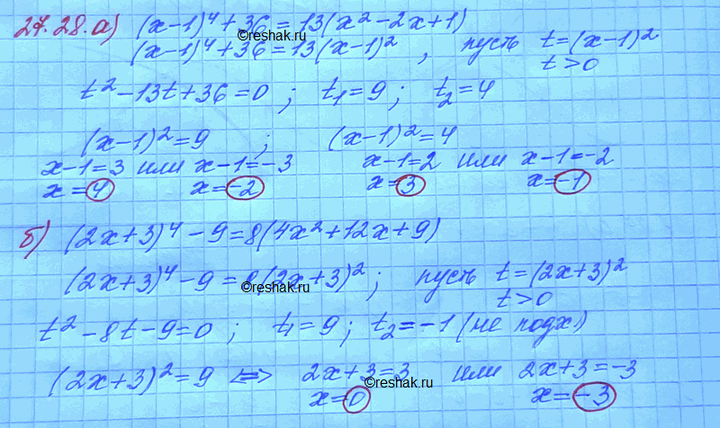 27.28.а) (x-1)⁴+36=13(x²-2x+1)
©reshak.ru
(x-1)⁴+36=13(x-1)², пусть t=(x-1)²
t>0
t²-13t+36=0; t₁=9; t₂=4
(x-1)²=9; (x-1)²=4
x-1=3 или x-1=-3 x-1=2 или x-1=-2
x=4 x=-2 x=3 x=-1
б) (2x+3)⁴-9=8(4x²+12x+9)
(2x+3)⁴-9=8(2x+3)²; пусть t=(2x+3)²
©reshak.ru
t>0
t²-8t-9=0; t₁=9; t₂=-1 (не подх)
(2x+3)²=9 <=> 2x+3=3 или 2x+3=-3
©reshak.ru
x=0 x=-3